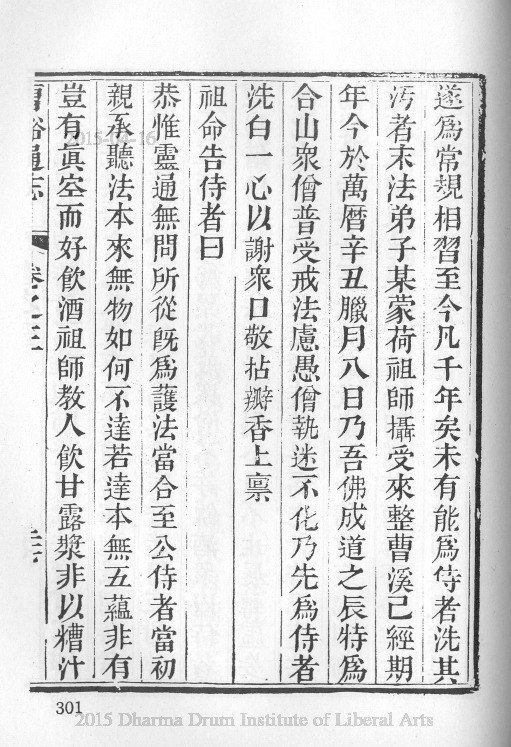 遂爲常規相習至今凡千年矣未有能爲侍者洗其
汚者末法弟子某蒙荷祖師攝受來整曹溪已經期
年今於萬曆辛丑臘月八日乃吾佛成道之辰特爲
合山衆僧普受戒法慮愚僧執迷不化乃先爲侍者
洗白一心以謝衆口敬拈瓣香上禀
祖命告侍者曰
恭惟靈通無問所從旣爲護法當合至公侍者當初
親承聽法本來無物如何不達若達本無五蘊非有
豈有眞空而好飮酒祖師教人飮甘露漿非以糟汁
曹谿通志
卷之三
301
2015 Dharma Drum Institute of Liberal Arts